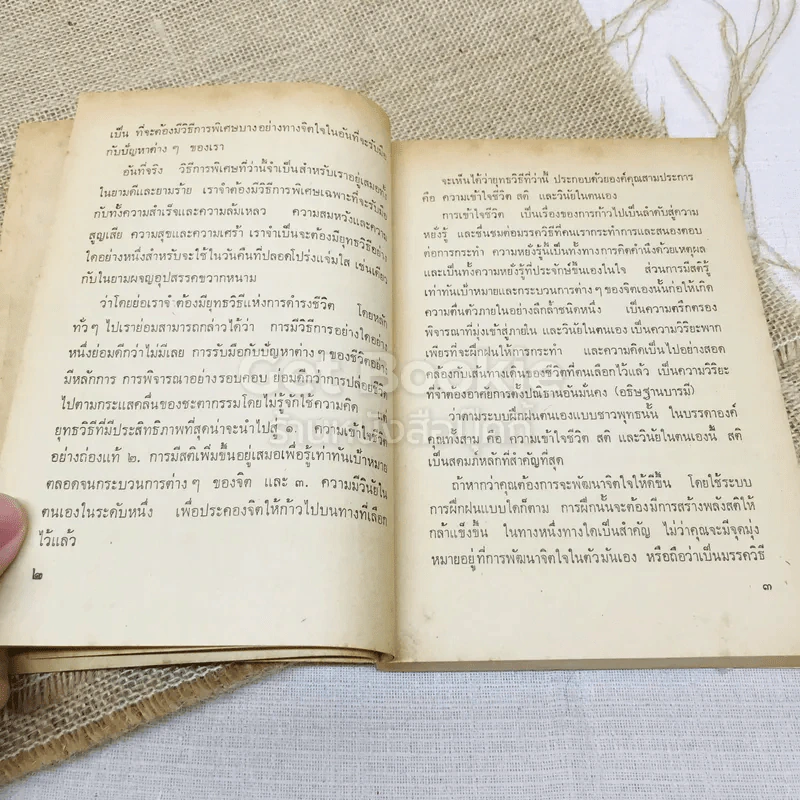 เป็น ที่จะต้องมีวิธีการพิเศษบางอย่างทางจิตใจในอันที่จะรับมือ
กับปัญหาต่าง ๆ ของเรา
อันที่จริง วิธีการพิเศษที่ว่านี้จำเป็นสำหรับเราอยู่เสมอทั้ง
ในยามดีและยามร้าย เราจำต้องมีวิธีการพิเศษเฉพาะที่จะรับมือ
กับทั้งความสำเร็จและความล้มเหลว ความสมหวังและความ
สูญเสีย ความสุขและความเศร้า เราจำเป็นจะต้องมียุทธวิธีอย่าง
ใดอย่างหนึ่งสำหรับจะใช้ในวันคืนที่ปลอดโปร่งแจ่มใส เช่นเดียว
กับในยามผจญอุปสรรคขวากหนาม
ว่าโดยย่อเราจำต้องมียุทธวิธีแห่งการดำรงชีวิต โดยหลัก
ทั่ว ๆ ไปเราย่อมสามารถกล่าวได้ว่า การมีวิธีการอย่างใดอย่าง
หนึ่งย่อมดีกว่าไม่มีเลย การรับมือกับปัญหาต่าง ๆ ของชีวิตอย่าง
มีหลักการ การพิจารณาอย่างรอบคอบ ย่อมดีกว่าการปล่อยชีวิต
ไปตามกระแสคลื่นของชะตากรรมโดยไม่รู้จักใช้ความคิด แต่
ยุทธวิธีที่มีประสิทธิภาพที่สุดน่าจะนำไปสู่ ๑. ความเข้าใจชีวิต
อย่างถ่องแท้ ๒. การมีสติเพิ่มขึ้นอยู่เสมอเพื่อรู้เท่าทันเป้าหมาย
ตลอดจนกระบวนการต่างๆ ของจิต และ ๓. ความมีวินัยใน
ตนเองในระดับหนึ่ง เพื่อประคองจิตให้ก้าวไปบนทางที่เลือก
ไว้แล้ว
๒
จะเห็นได้ว่ายุทธวิธีที่ว่านี้ ประกอบด้วยองค์คุณสามประการ
คือ ความเข้าใจชีวิต สติ และวินัยในตนเอง
การเข้าใจชีวิต เป็นเรื่องของการก้าวไปเป็นลำดับสู่ความ
หยั่งรู้ และชื่นชมต่อมรรควิธีที่คนเรากระทำการและสนองตอบ
ต่อการกระทำ ความหยั่งรู้นี้เป็นทั้งทางการคิดคำนึงด้วยเหตุผล
และเป็นทั้งความหยั่งรู้ที่ประจักษ์ขึ้นเองในใจ ส่วนการมีสติรู้
เท่าทันเป้าหมายและกระบวนการต่างๆ ของจิตเองนั้นก่อให้เกิด
ความตื่นตัวภายในอย่างลึกล้ำชนิดหนึ่ง เป็นความตรึกตรอง
พิจารณาที่มุ่งเข้าสู่ภายใน และวินัยในตนเอง เป็นความวิริยะพาก
เพียรที่จะฝึกฝนให้การกระทำ และความคิดเป็นไปอย่างสอด
คล้องกับเส้นทางเดินของชีวิตที่ตนเลือกไว้แล้ว เป็นความวิริยะ
ที่จำต้องอาศัยการตั้งปณิธานอันมั่นคง (อธิษฐานบารมี)
ว่าตามระบบฝึกฝนตนเองแบบชาวพุทธนั้น ในบรรดาองค์
คุณทั้งสาม คือ ความเข้าใจชีวิต สติ และวินัยในตนเองนี้ สติ
เป็นสดมภ์หลักที่สำคัญที่สุด
ถ้าหากว่าคุณต้องการจะพัฒนาจิตใจให้ดีขึ้น โดยใช้ระบบ
การฝึกฝนแบบใดก็ตาม การฝึกนั้นจะต้องมีการสร้างพลังสติให้
กล้าแข็งขึ้น ในทางหนึ่งทางใดเป็นสำคัญ ไม่ว่าคุณจะมีจุดมุ่ง
หมายอยู่ที่การพัฒนาจิตใจในตัวมันเอง หรือถือว่าเป็นมรรควิธี
๓
Get Bookie
ร้านหนังสือบุ๊คกี้